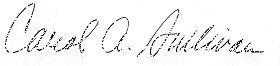 Carol A. Sullivan